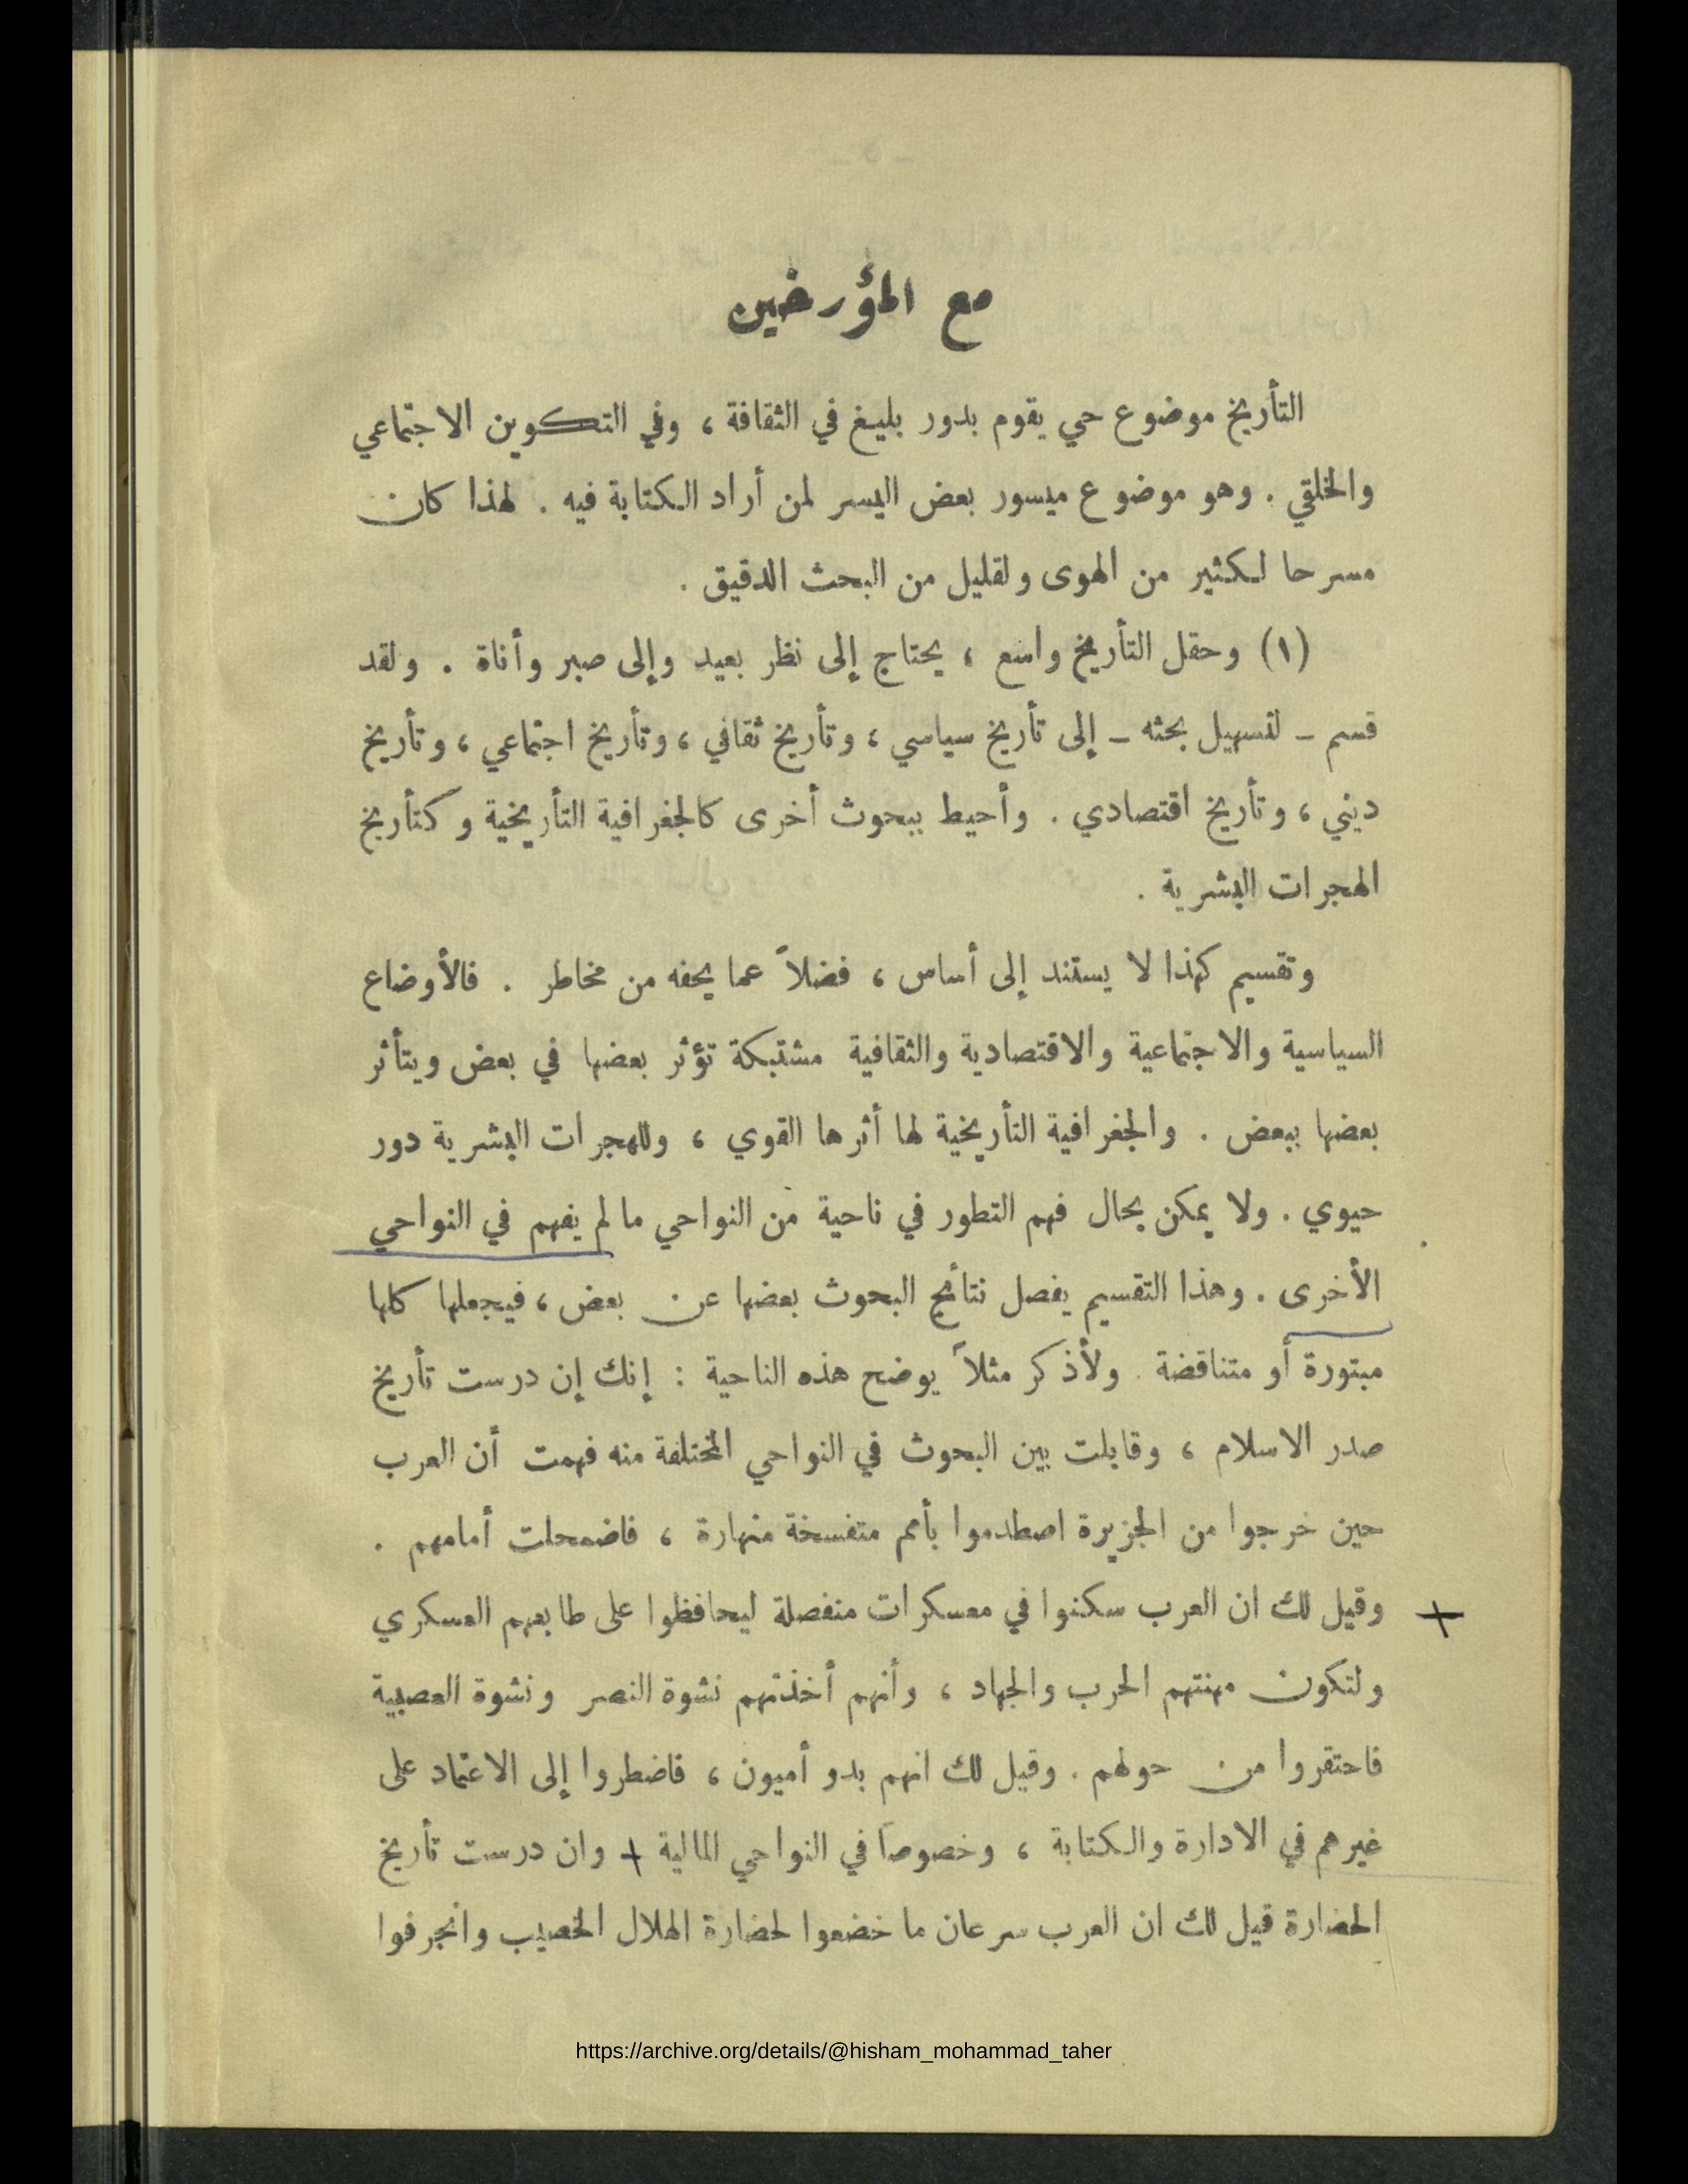 مع المؤرخين
التأريخ موضوع حي يقوم بدور بليغ في الثقافة ، وفي التكوين الاجتماعي
والخلقي . وهو موضوع ميسور بعض اليسر لمن أراد الكتابة فيه . لهذا كان
مسرحا لكثير من الهوى ولقليل من البحث الدقيق .
(١) وحقل التأريخ واسع ، يحتاج إلى نظر بعيد وإلى صبر وأناة . ولقد
قسم – لتسهيل بحثه – إلى تأريخ سياسي ، وتأريخ ثقافي ، وتأريخ اجتماعي ، وتأريخ
ديني ، وتأريخ اقتصادي . وأحيط ببحوث أخرى كالجغرافية التأريخية وكتأريخ
الهجرات البشرية .
وتقسيم كهذا لا يستند إلى أساس ، فضلاً عما يحفه من مخاطر . فالأوضاع
السياسية والاجتماعية والاقتصادية والثقافية مشتبكة تؤثر بعضها في بعض ويتأثر
بعضها ببعض . والجغرافية التأريخية لها أثرها القوي ، وللهجرات البشرية دور
حيوي . ولا يمكن بحال فهم التطور في ناحية من النواحي ما لم يفهم في النواحي
الأخرى . وهذا التقسيم يفصل نتائج البحوث بعضها عن بعض ، فيجعلها كلها
مبتورة أو متناقضة . ولأذكر مثلاً يوضح هذه الناحية : إنك إن درست تأريخ
صدر الاسلام ، وقابلت بين البحوث في النواحي المختلفة منه فهمت أن العرب
حين خرجوا من الجزيرة اصطدموا بأمم متفسخة منهارة ، فاضمحلت أمامهم .
+ وقيل لك ان العرب سكنوا في معسكرات منفصلة ليحافظوا على طابعهم العسكري
ولتكون مهنتهم الحرب والجهاد ، وأنهم أخذتهم نشوة النصر ونشوة العصبية
فاحتقروا من حولهم . وقيل لك انهم بدو أميون ، فاضطروا إلى الاعتماد على
غيرهم في الادارة والكتابة ، وخصوصاً في النواحي المالية + وان درست تأريخ
الحضارة قيل لك ان العرب سرعان ما خضعوا لحضارة الهلال الخصيب وانجرفوا
https://archive.org/details/@hisham_mohammad_taher